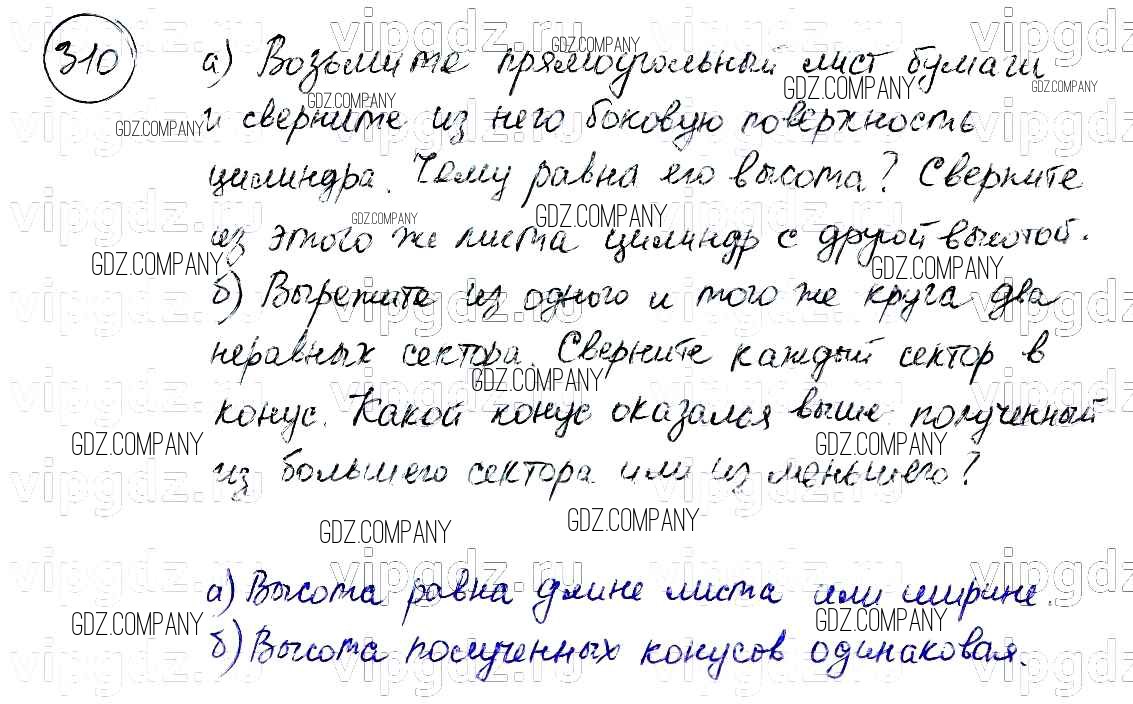 310 а) Возьмите прямоугольный лист бумаги
и сверните из него боковую поверхность
цилиндра. Чему равна его высота? Сверните
из этого же листа цилиндр с другой высотой.
б) Вырежите из одного и того же круга два
неравных сектора. Сверните каждый сектор в
конус. Какой конус оказался выше полученный
из большего сектора или из меньшего?
а) Высота равна длине листа или ширине.
б) Высота полученных конусов одинаковая.
vipgdz.ru
GDZ.COMPANY